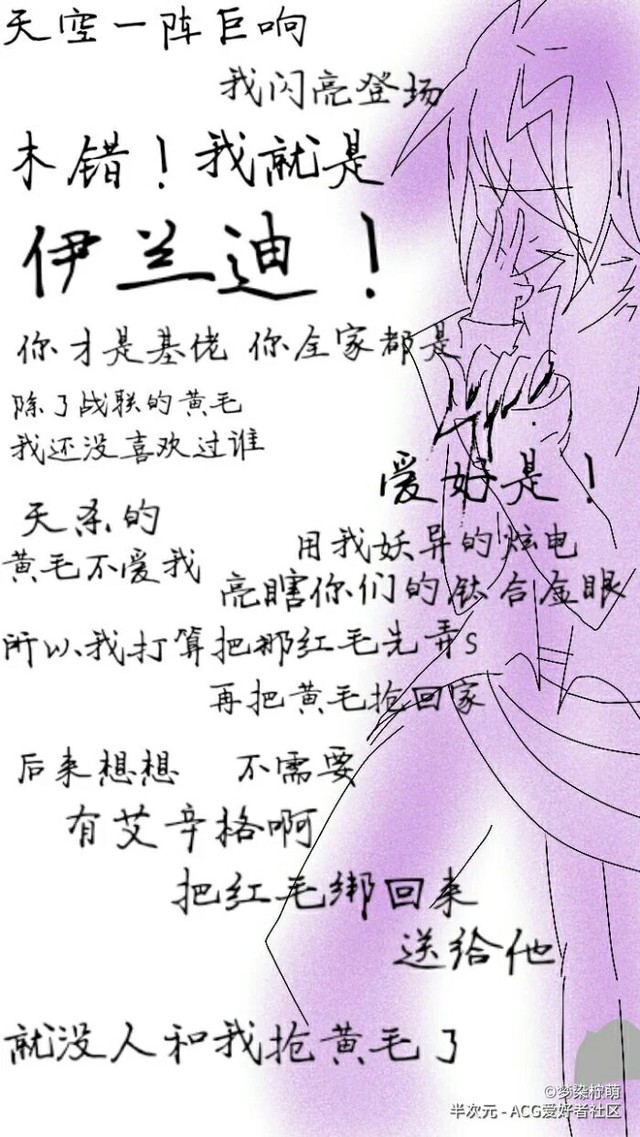 天空一阵巨响
我闪亮登场
木错！我就是
伊兰迪！
你才是基佬 你全家都是
除了战联的黄毛
我还没喜欢过谁
爱好是！
天杀的
黄毛不爱我
用我妖异的炫电
亮瞎你们的钛合金眼
所以我打算把那红毛先弄s
再把黄毛抢回家
后来想想 不需要
有艾辛格啊
把红毛绑回来
送给他
就没人和我抢黄毛了
©梦染柠萌
半次元 - ACG爱好者社区